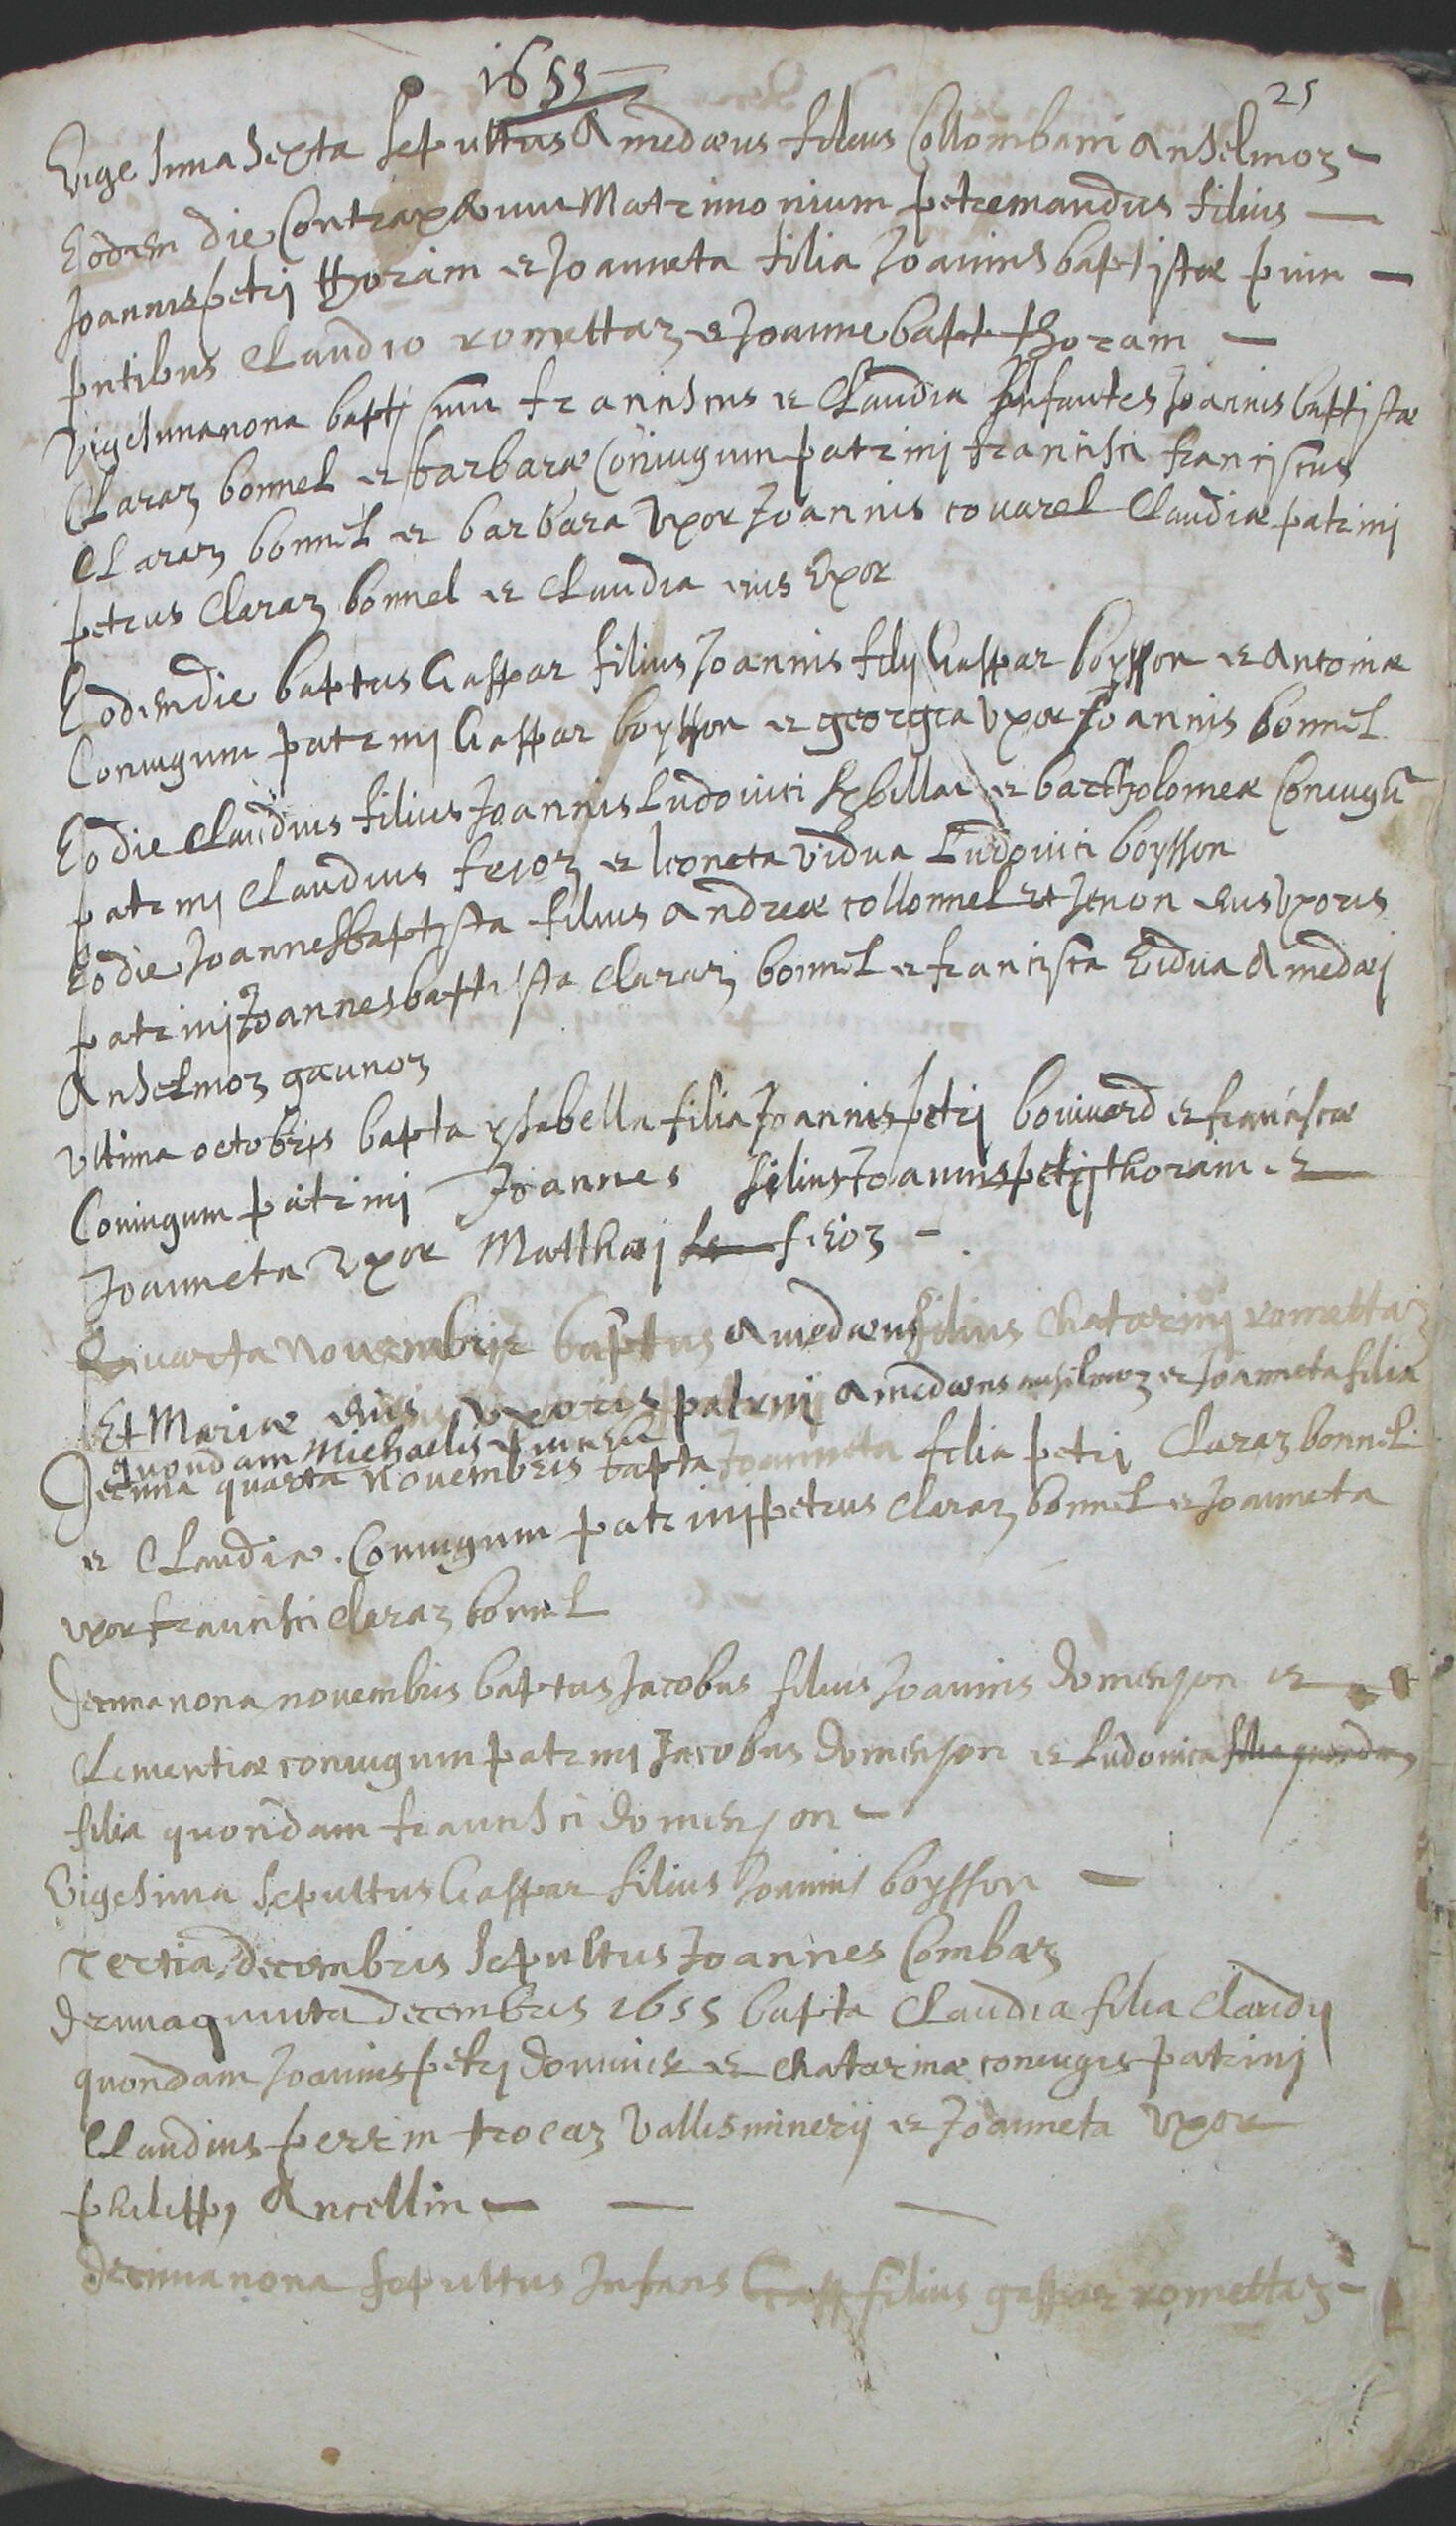 1655
25
Vigesima sexta sepultus Amedæus filius Collombani Anselmoz
Eodem die Contraxerunt Matrimonium petremandus filius
Joannis petrj Thoram et Joanneta filia Joannis baptistæ
pntibus Claudio romettaz et Joanne bapt thoram
Vigesimanona bapti sunt franciscus et Claudia Infantes Joannis baptistæ
Claraz bonnel et barbaræ Coniugum patrinj francisci franciscus
Claraz bonnel et barbara Vxor Joannis couarel Claudiæ patrinj
petrus Claraz bonnel et Claudia eius Vxor
Eodem die baptus Gaspar filius Joannis filij Gaspar boysson et Antoniæ
Coniugum patrinj Gaspar boysson et georgia Vxor Joannis bonnel
Eo die Claudius filius Joannis Ludouici et bartholomeæ Coniugū
patrinj Claudius feioz et leoneta Vidua Ludouici boysson
Eo die Joannesbaptista filius Andreæ collonnel et Jenon eius Vxoris
patrinj Joannesbaptista Claraz bonnel et francisca Vidua Amedæj
Anselmoz gaunoz
Vltima octobris bapta ysabella filia Joannis petrj bouuard et franciscæ
Coniugum patrinj Joannes filius Joannis petrj thoram et
Joanneta Vxor Matthæj feioz
Quarta Nouembris baptus Amedæus filius Chatarinj romettaz
Et Mariæ eius Vxoris patrinj Amedæus anselmoz et Joanneta filia
quondam Michaelis
Decima quarta Nouembris bapta Joanneta filia petrj Claraz bonnel
et Claudiæ Coniugum patrinj petrus Claraz bonnel et Joanneta
vxor francisci Claraz bonnel
Decimanona nouembris baptus Jacobus filius Joannis domenjon et
Clementiæ coniugum patrinj Jacobus domenjon et Ludouica filia quondam
filia quondam francisci domenjon
Vigesima sepultus Gaspar filius Joannis boysson
Tertia decembris sepultus Joannes Combaz
decimaquinta decembris 1655 bapta Claudia filia Claudij
quondam Joannis petrj et Chatarinæ coniugis patrinj
Claudius perrin trocaz Vallisminerij et Joanneta Vxor
philippj Ancellin
decimanona sepultus Infans Gasp filius gaspar romettaz